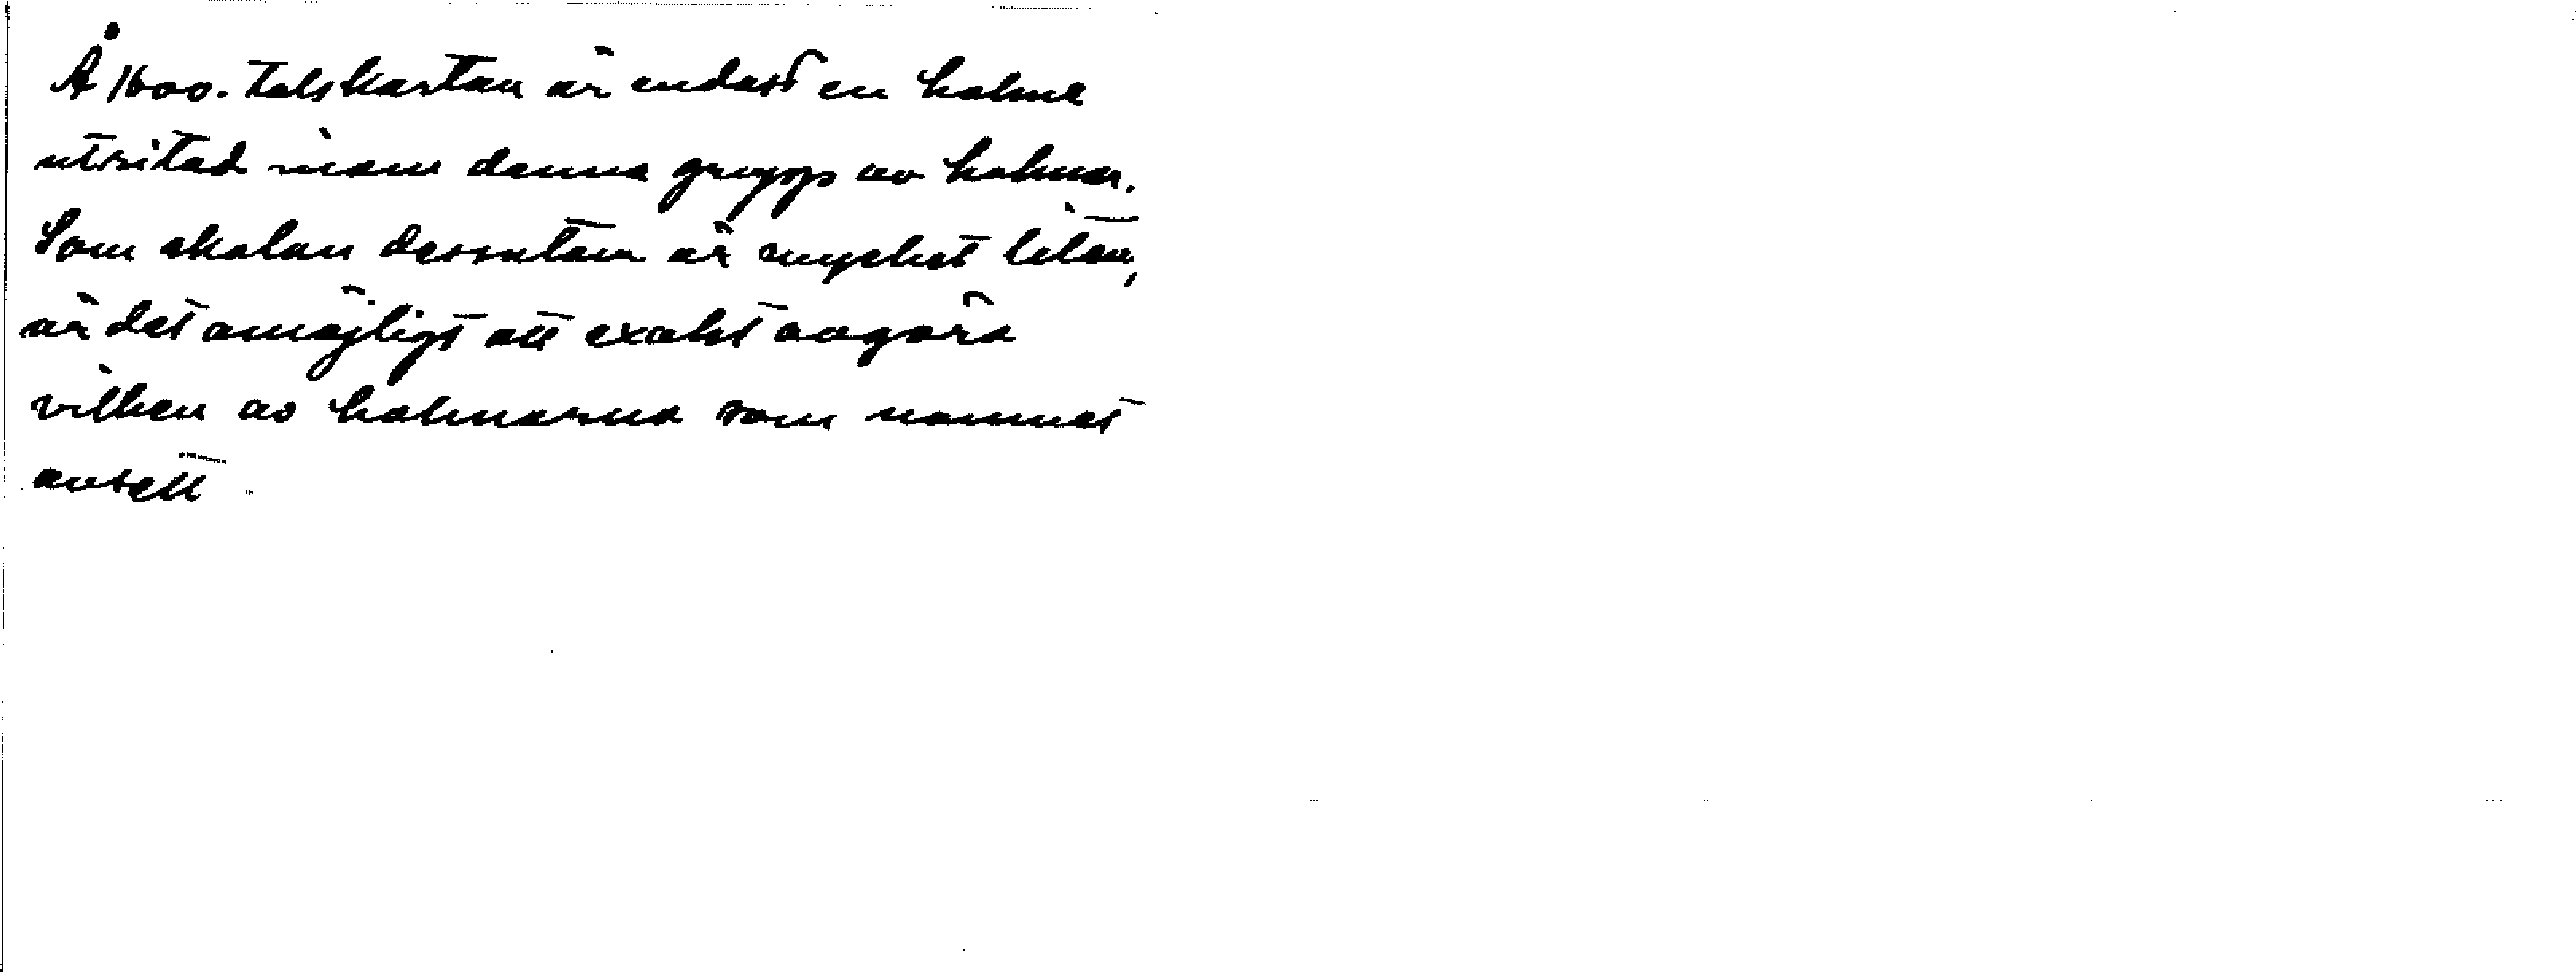 Å 1600-talskartan är endast en holme
utritad inom denna grupp av holmar.
Som skalan dessutom är mycket liten,
är det omöjligt att exakt avgöra
vilken av holmarna som namnet
avsett